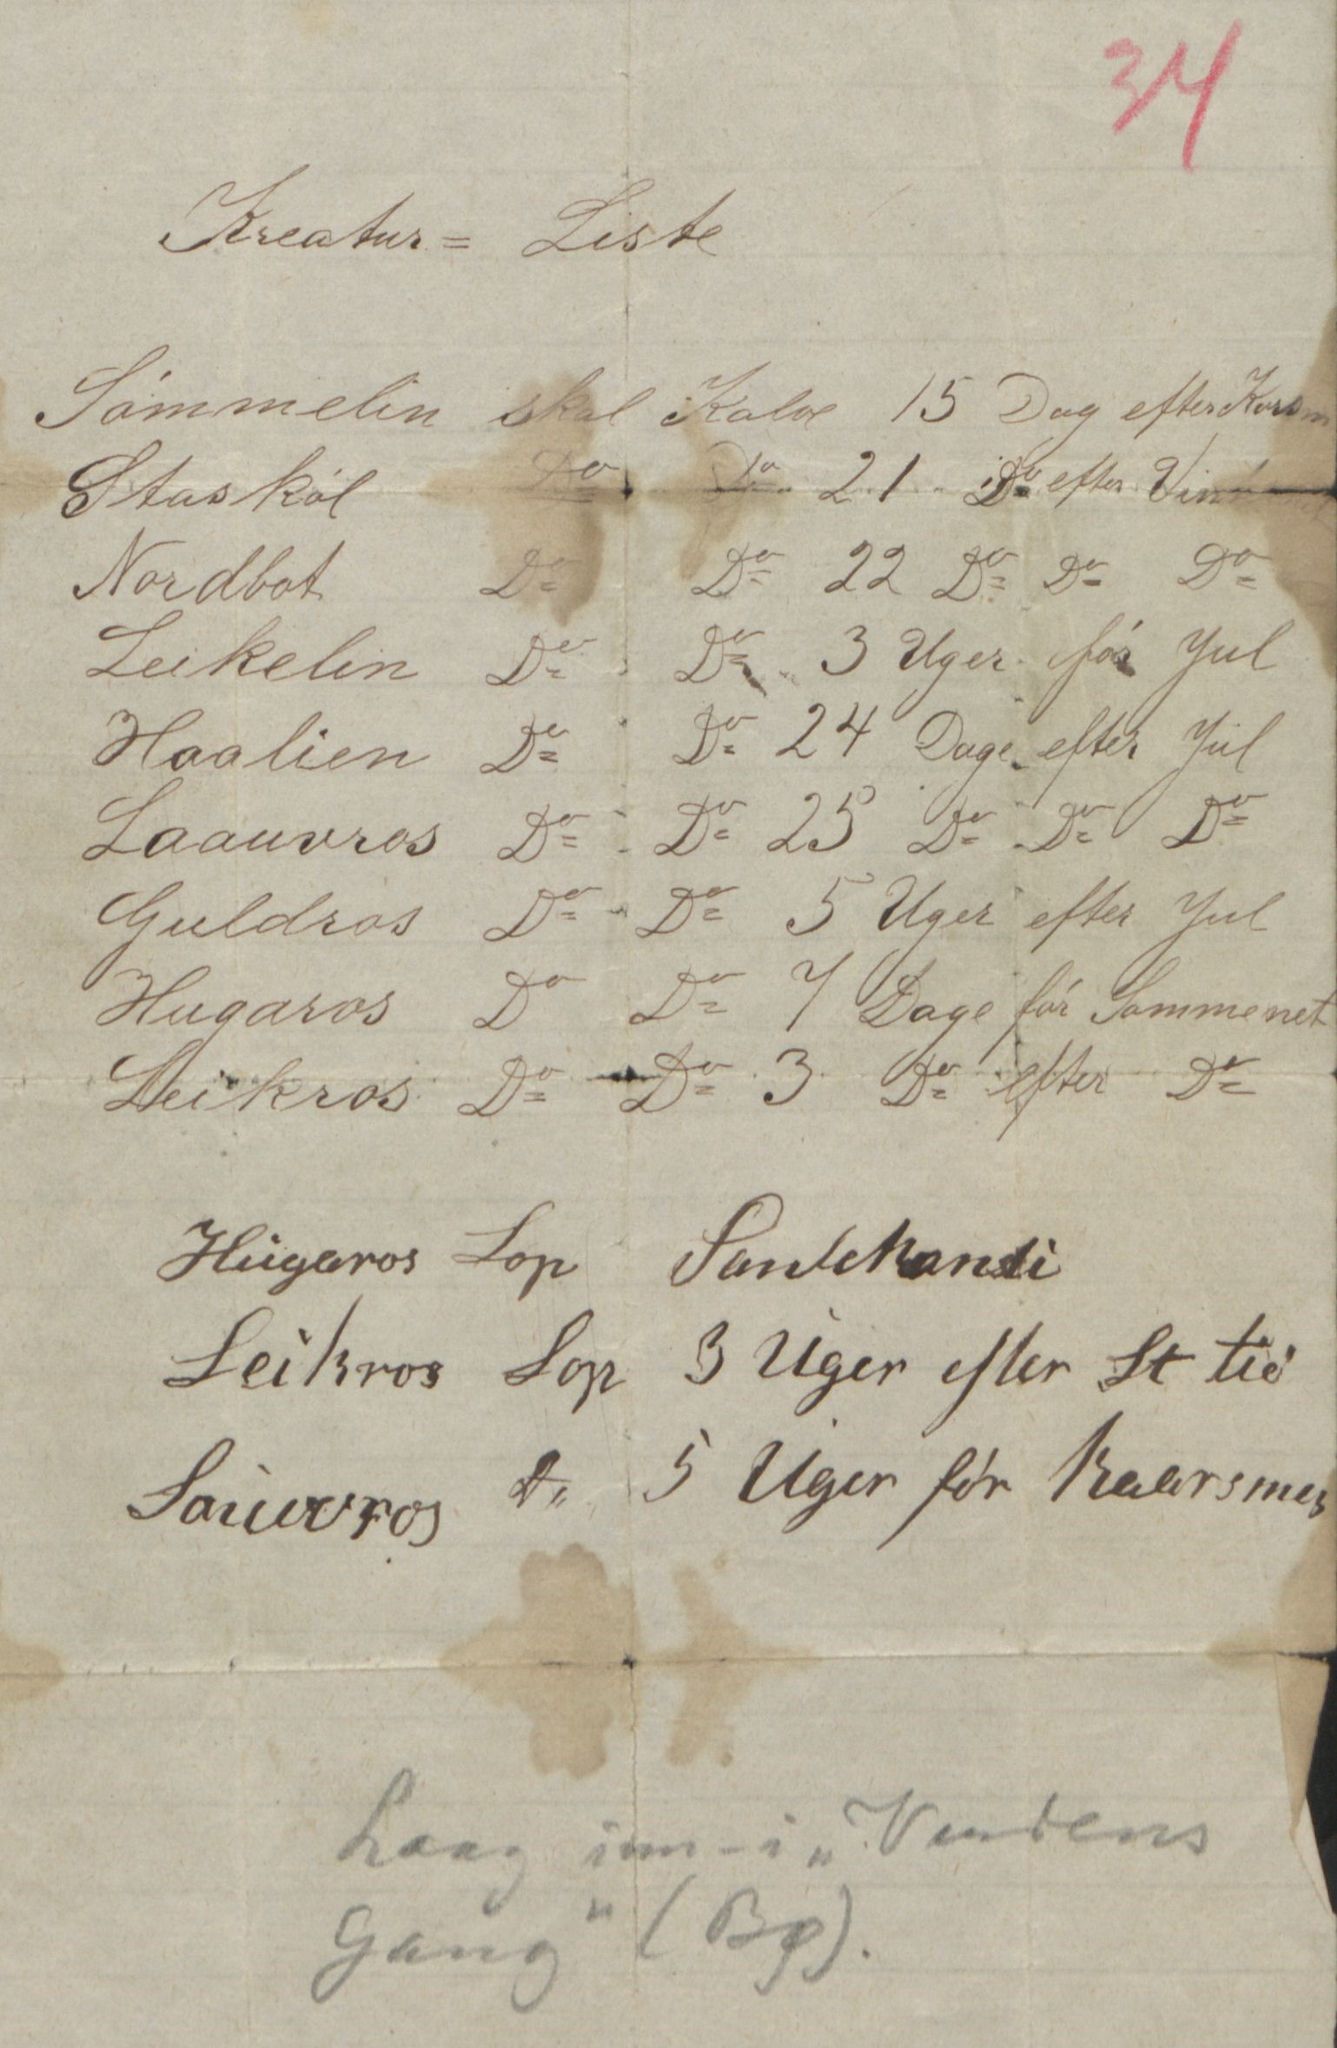 34
Kreatur= Liste
Sømmelin skal Kalve 15 Dag efter Korsm
Staskól Do Do 21 Do efter
Nordbot Do Do 22 Do Do Do
Leikelin Do Do 3 Uger før Jul
Haalien Do Do 24 Dage efter Jul
Laauvros Do Do 25 Do Do Do
Guldros Do Do 5 Uger efter Jul
Hugaros Do Do 7 Dage før Sommenet
Leikros Do Do 3 Do efter Do
Hügaros Lop
Leikros Lop 3 Uger efter St tid
Laüvros Do 5 Uger før Kaarsmes
Laag inn-i „Verdens
Gang" (Bø).